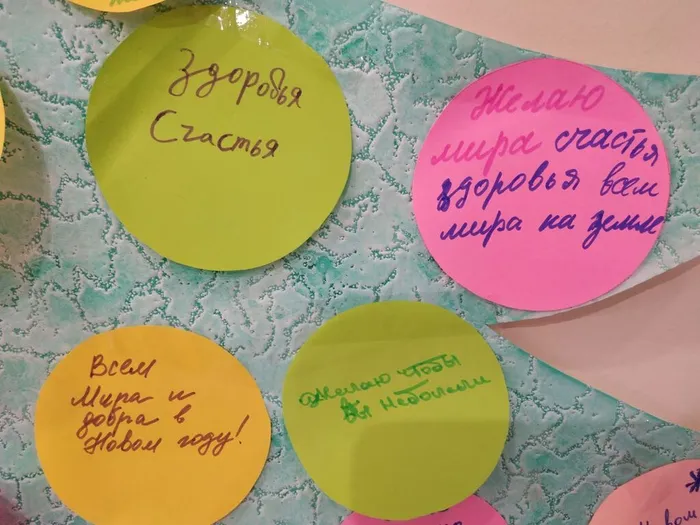 Здоровья
Счастья
Желаю
мира счастья
здоровья всем
мира на земле
Всем
Мира и
добра в
Новом году!
Желаю чтобы
Вы неболели